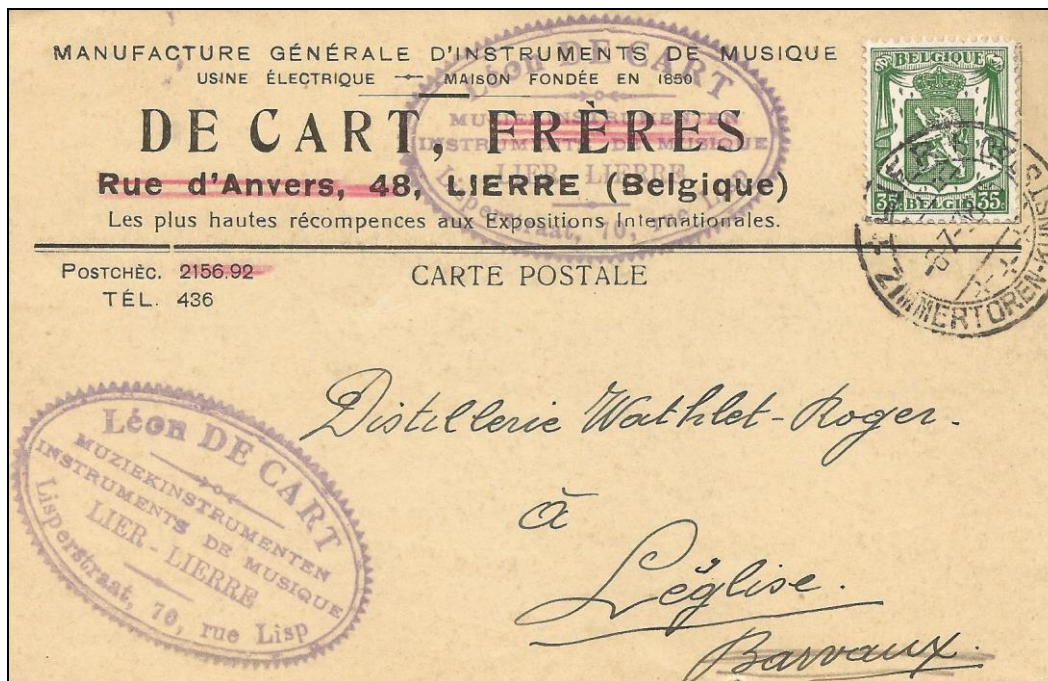 MANUFACTURE GÉNÉRALE D'INSTRUMENTS DE MUSIQUE
USINE ÉLECTRIQUE — MAISON FONDÉE EN 1850
DE CART, FRÈRES
Rue d'Anvers, 48, LIERRE (Belgique)
Les plus hautes récompences aux Expositions Internationales.
Léon DE CART
MUZIEKINSTRUMENTEN
INSTRUMENTS DE MUSIQUE
LIER - LIERRE
Lisperstraat, 70, rue Lisp
BELGIQUE
35c BELGIË 35c
ZIMMERTOREN-KUNST
POSTCHÈC. 2156.92
TÉL. 436
CARTE POSTALE
Distillerie Wathlet-Roger.
à
Léglise.
Barvaux.
Léon DE CART
MUZIEKINSTRUMENTEN
INSTRUMENTS DE MUSIQUE
LIER - LIERRE
Lisperstraat, 70, rue Lisp